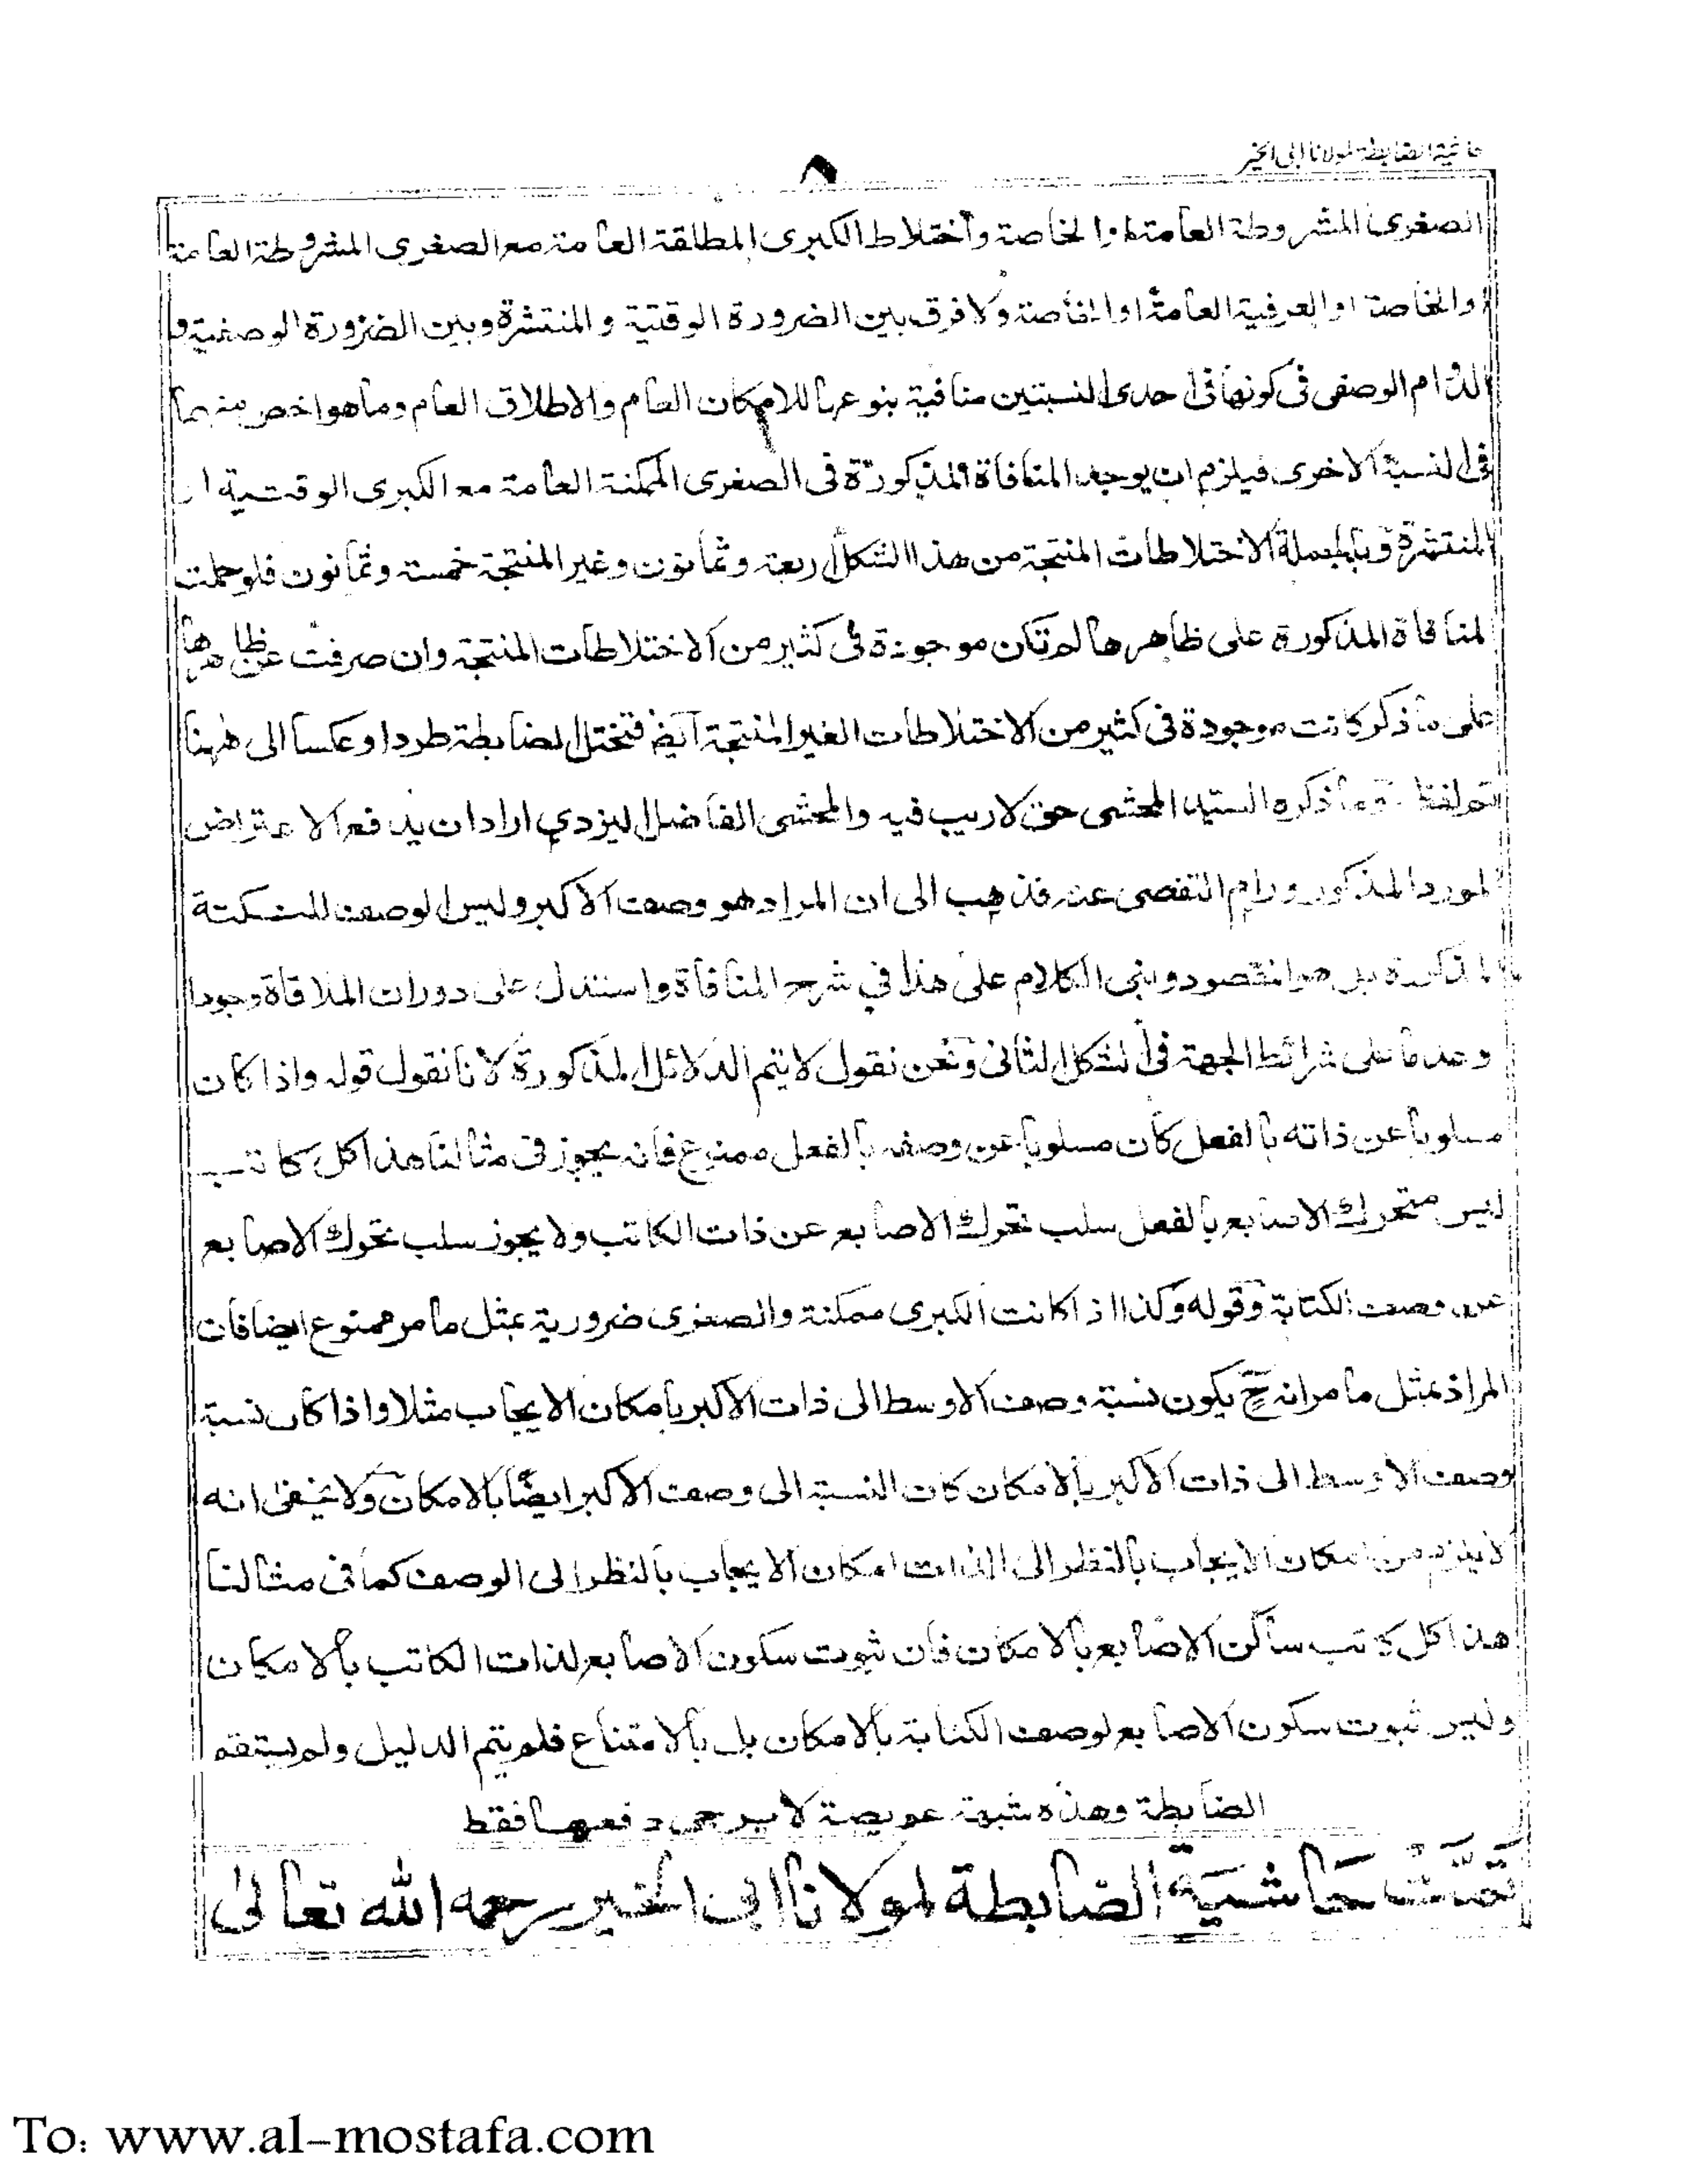 حاشية الضابطة لمولانا ابى الخير
٨
الصغرى المشروطة العامة او الخاصة واختلاط الكبرى المطلقة العامة مع الصغرى المشروطة العامة
او الخاصة او العرفية العامة او الخاصة ولا فرق بين الضرورة الوقتية والمنتشرة وبين الضرورة الوصفية و
الدوام الوصفى فى كونها فى احدى النسبتين منافية بنوعها للامكان العام والاطلاق العام وما هو اخص منهما
فى النسبة الاخرى فيلزم ان يوجد المنافاة المذكورة فى الصغرى الممكنة العامة مع الكبرى الوقتية او
المنتشرة وبالجملة الاختلاطات المنتجة من هذا الشكل اربعة وثمانون وغير المنتجة خمسة وثمانون فلو حملت
المنافاة المذكورة على ظاهرها لم تكن موجودة فى كثير من الاختلاطات المنتجة وان صرفت عن ظاهرها
على ما ذكر كانت موجودة فى كثير من الاختلاطات الغير المنتجة ايضا فتختل الضابطة طردا وعكسا الى ههنا
وما ذكره السيد المحشى حق لا ريب فيه والمحشى الفاضل اليزدي اراد ان يدفع الاعتراض
المورد المذكور ورام التفصى عنه فذهب الى ان المراد هو وصف الاكبر وليس الوصف للنكتة
المذكورة بل هو المقصود وبنى الكلام على هذا في شرح المنافاة واستدل على دوران الملاقاة وجودا
وعدما على شرائط الجهة فى الشكل الثانى ونحن نقول لا يتم الدلائل المذكورة لانا نقول قوله واذا كان
مسلوبا عن ذاته بالفعل كان مسلوبا عن وصفه بالفعل ممنوع فانه يجوز فى مثالنا هذا كل كاتب
ليس متحرك الاصابع بالفعل سلب تحرك الاصابع عن ذات الكاتب ولا يجوز سلب تحرك الاصابع
عن وصف الكتابة وقوله وكذا اذا كانت الكبرى ممكنة والصغرى ضرورية بمثل ما مر ممنوع ايضا فان
المراد بمثل ما مر انه ح يكون نسبة وصف الاوسط الى ذات الاكبر بامكان الايجاب مثلا واذا كان نسبة
وصف الاوسط الى ذات الاكبر بالامكان كان النسبة الى وصف الاكبر ايضا بالامكان ولا يخفى انه
لا يلزم من امكان الايجاب بالنظر الى الذات امكان الايجاب بالنظر الى الوصف كما فى مثالنا
هذا كل كاتب ساكن الاصابع بالامكان فان ثبوت سكون الاصابع لذات الكاتب بالامكان
وليس ثبوت سكون الاصابع لوصف الكتابة بالامكان بل بالامتناع فلم يتم الدليل ولم يستقم
الضابطة وهذه شبهة عويصة لا يرجى دفعها فقط
تمت حاشية الضابطة لمولانا ابى الخير رحمه الله تعالى
To: www.al-mostafa.com